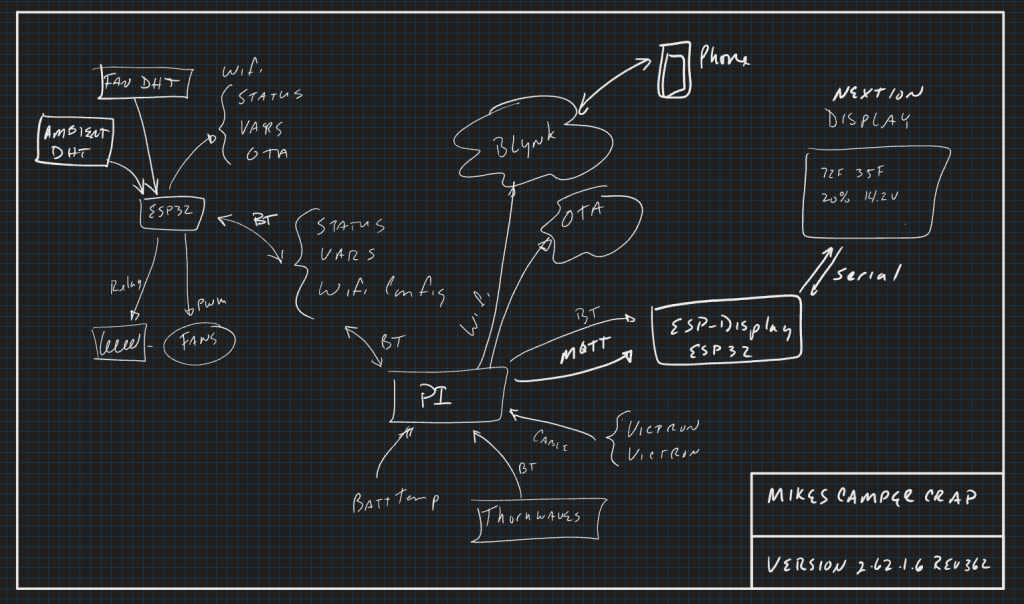 Phone
FAN DHT
Wifi
STATUS
VARS
OTA
AMBIENT
DHT
NEXTION
DISPLAY
Blynk
72F 35F
20% 14.2V
ESP32
BT
STATUS
VARS
Wifi Config
OTA
Serial
Relay
PWM
FANS
BT
Wifi
BT
MQTT
ESP-Display
ESP32
PI
CABLE
VICTRON
VICTRON
BATT Temp
BT
ThornWAVES
MIKES CAMPER CRAP
VERSION 2.62.1.6 REV362